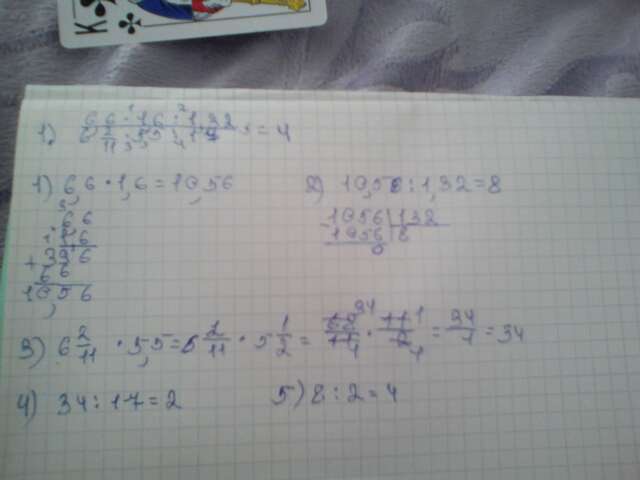 K
1) 6,6 · 1,6 : 1,32 = 4
6 2/11 · 5,5 : 17
1) 6,6 · 1,6 = 10,56
2) 10,56 : 1,32 = 8
66
16
+ 396
66
10,56
- 1056 | 132
1056 | 8
0
3) 6 2/11 · 5,5 = 6 2/11 · 5 1/2 = 68/11 · 11/2 = 34/1 = 34
4) 34 : 17 = 2
5) 8 : 2 = 4